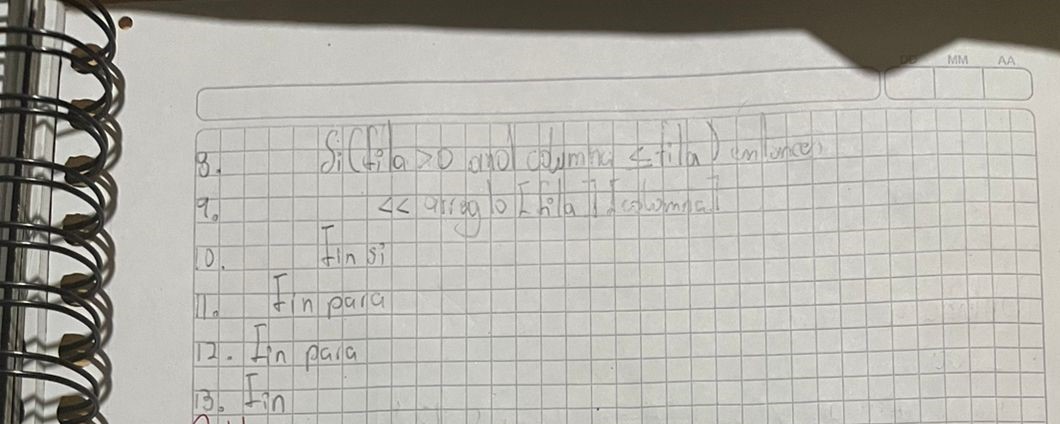 DD MM AA
8. Si(fila>0 and columna ≤ fila) entonces
9. << arreglo[fila][columna]
10. Fin si
11. Fin para
12. Fin para
13. Fin